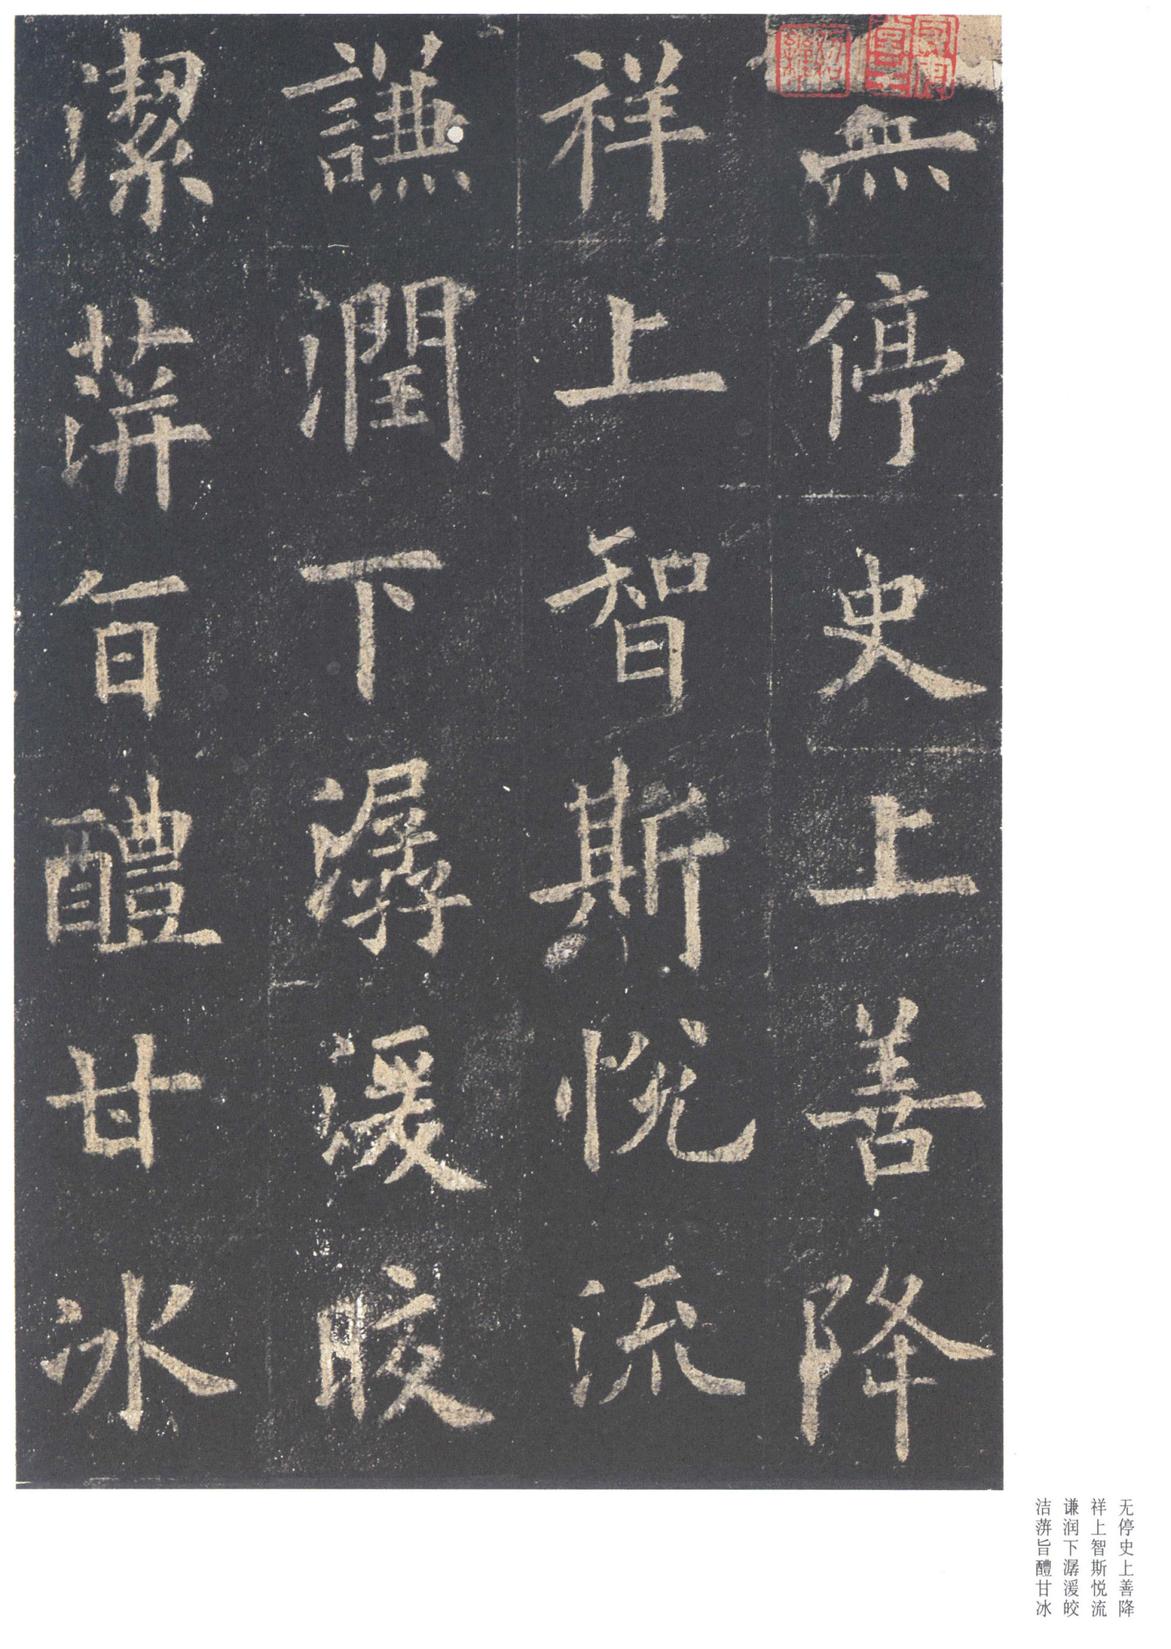 無停史上善降
祥上智斯悦流
謙潤下潺湲皎
潔蓱旨醴甘冰
无停史上善降
祥上智斯悦流
谦润下潺湲皎
洁蓱旨醴甘冰